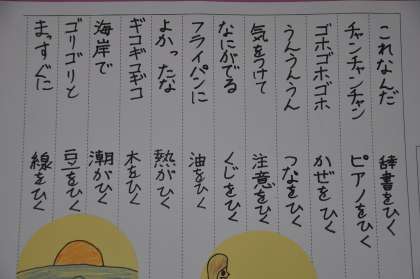 これなんだ 辞書をひく
チャンチャンチャン ピアノをひく
ゴホゴホゴホ かぜをひく
うんうんうん つなをひく
気をつけて 注意をひく
なにがでる くじをひく
フライパンに 油をひく
よかったな 熱がひく
ギコギコギコ 木をひく
海岸で 潮がひく
ゴリゴリと 豆をひく
まっすぐに 線をひく